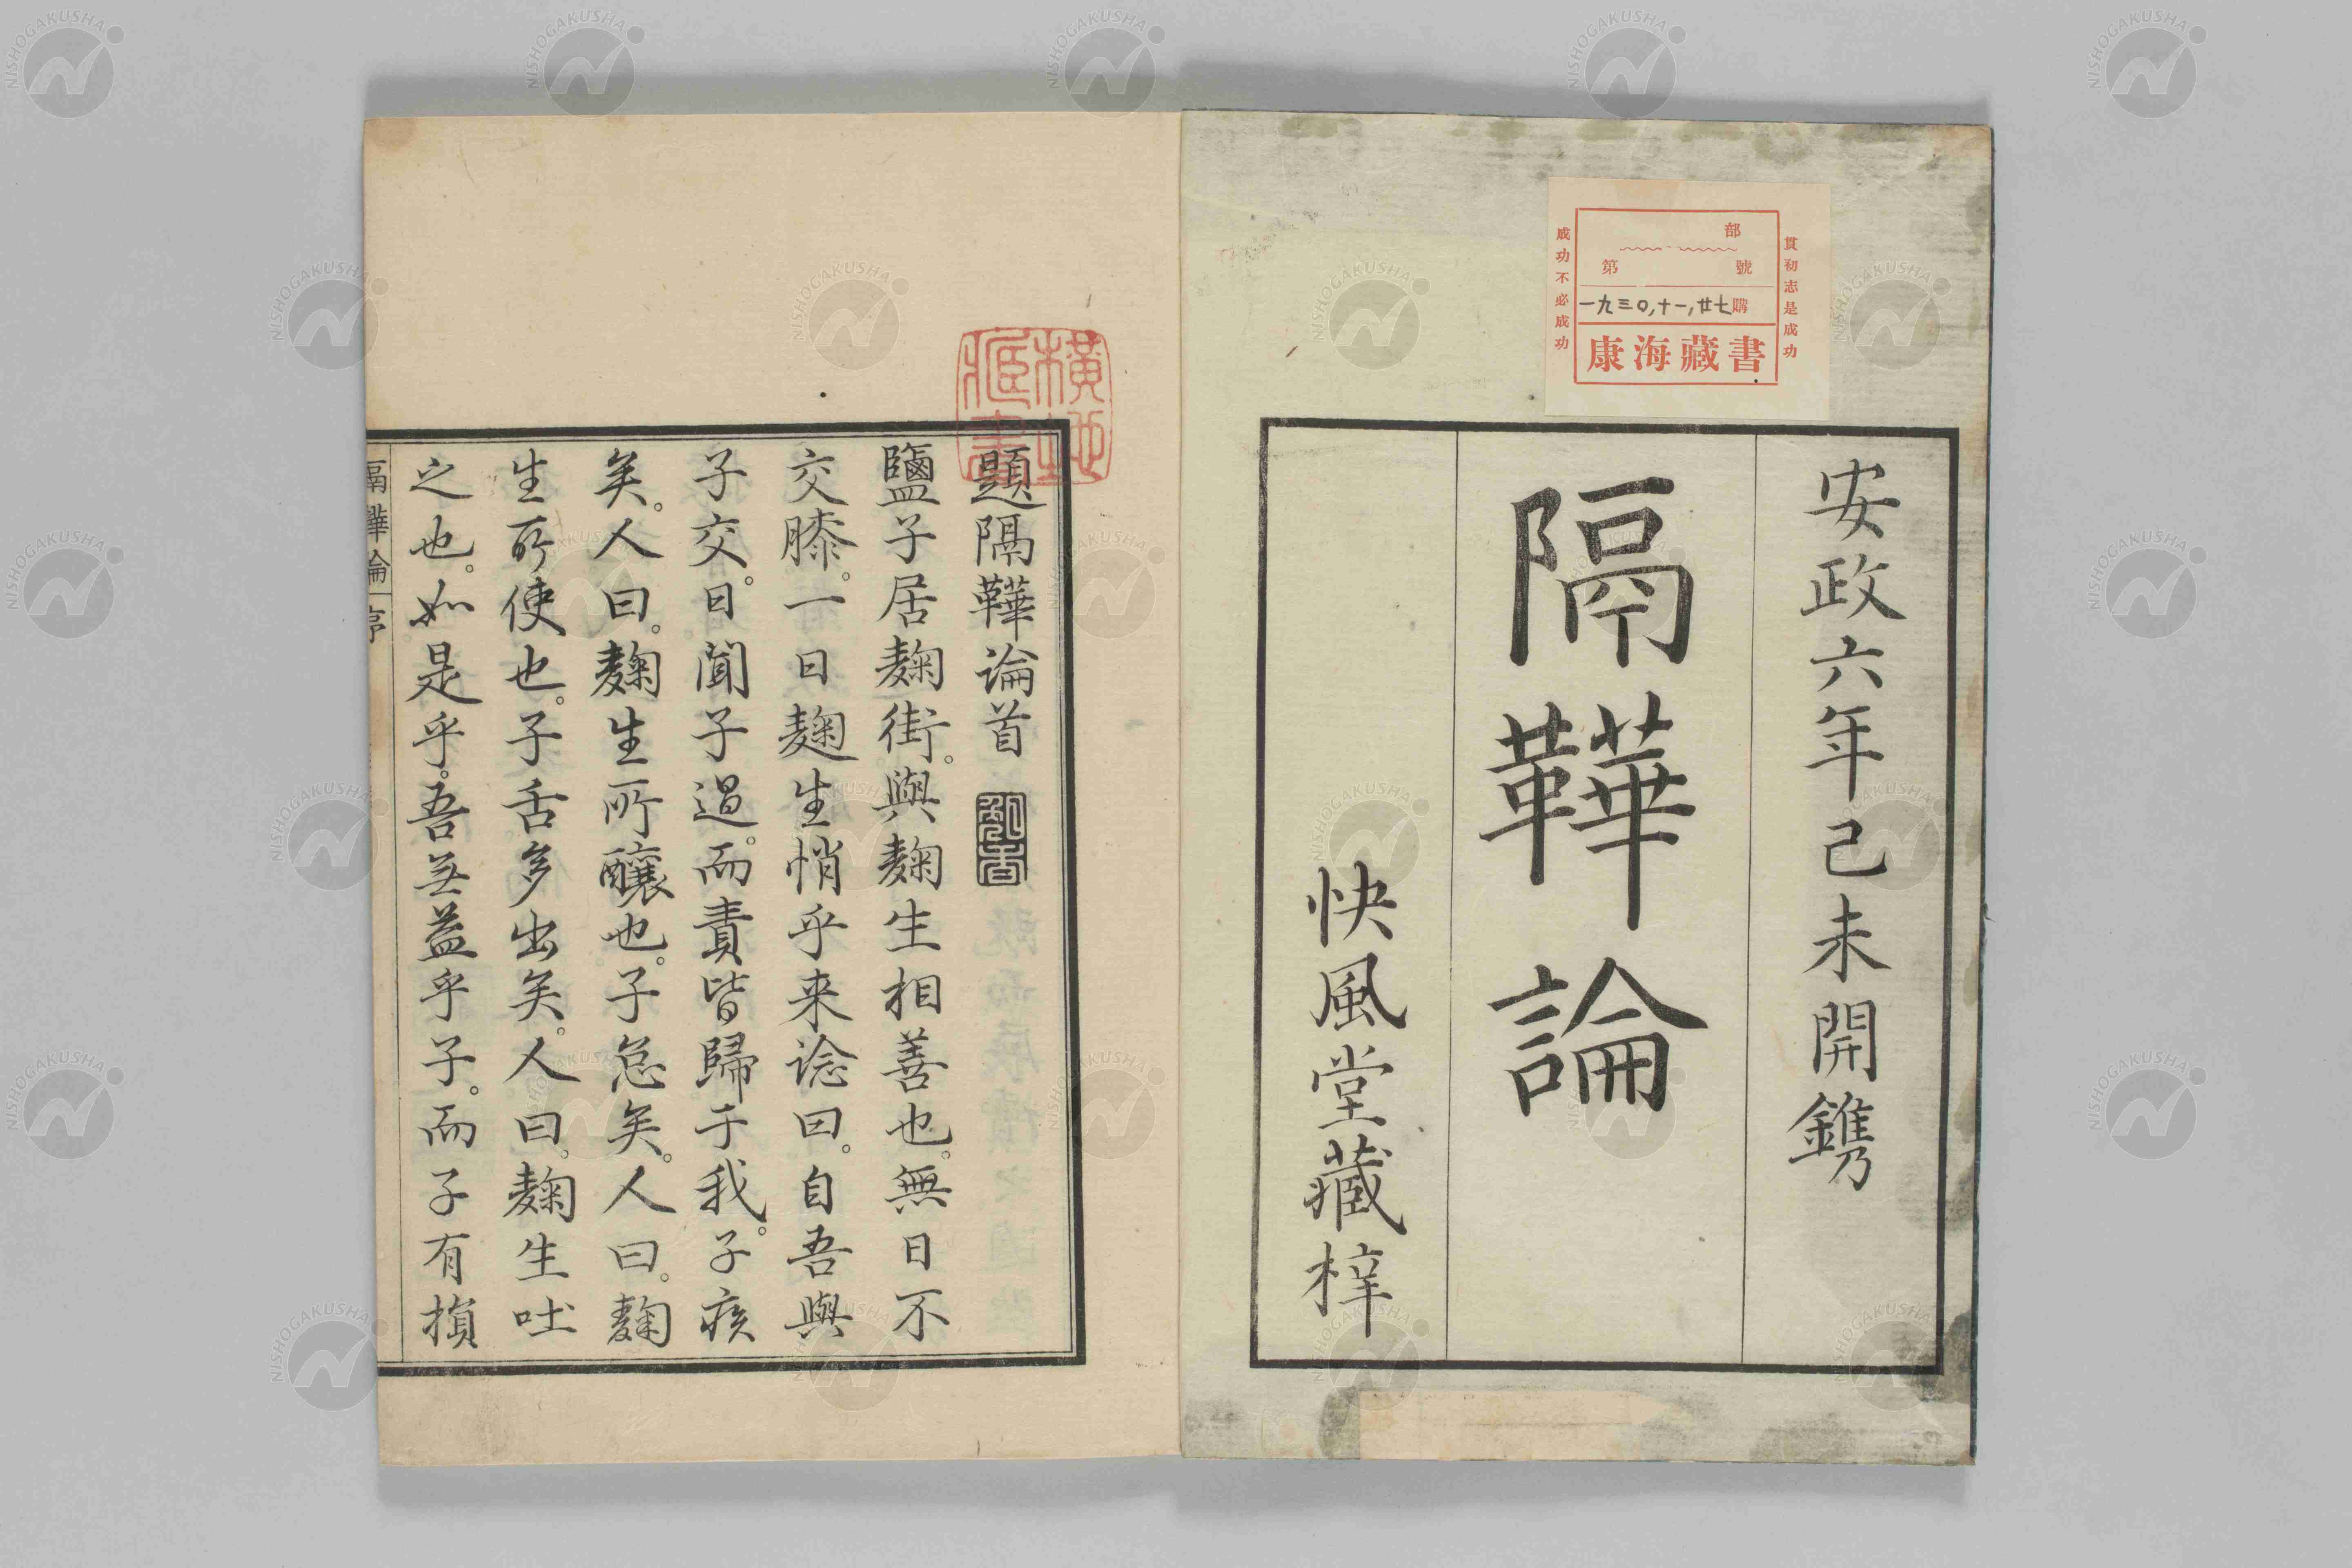 貫初志是成功
部
第　號
一九三〇,十一,廿七購
康海藏書
成功不必成功
安政六年己未開鐫
隔鞾論
快風堂藏梓
橫地
藏書
題隔鞾論首
鹽子居麴街。與麴生相善也。無日不
交膝。一日麴生悄乎来諗曰。自吾與
子交。日聞子過。而責皆歸于我。子痎
矣。人曰。麴生所釀也。子怠矣。人曰。麴
生所使也。子舌多出矣。人曰。麴生吐
之也。如是乎。吾無益乎子。而子有損
隔鞾論 序
NISHOGAKUSHA